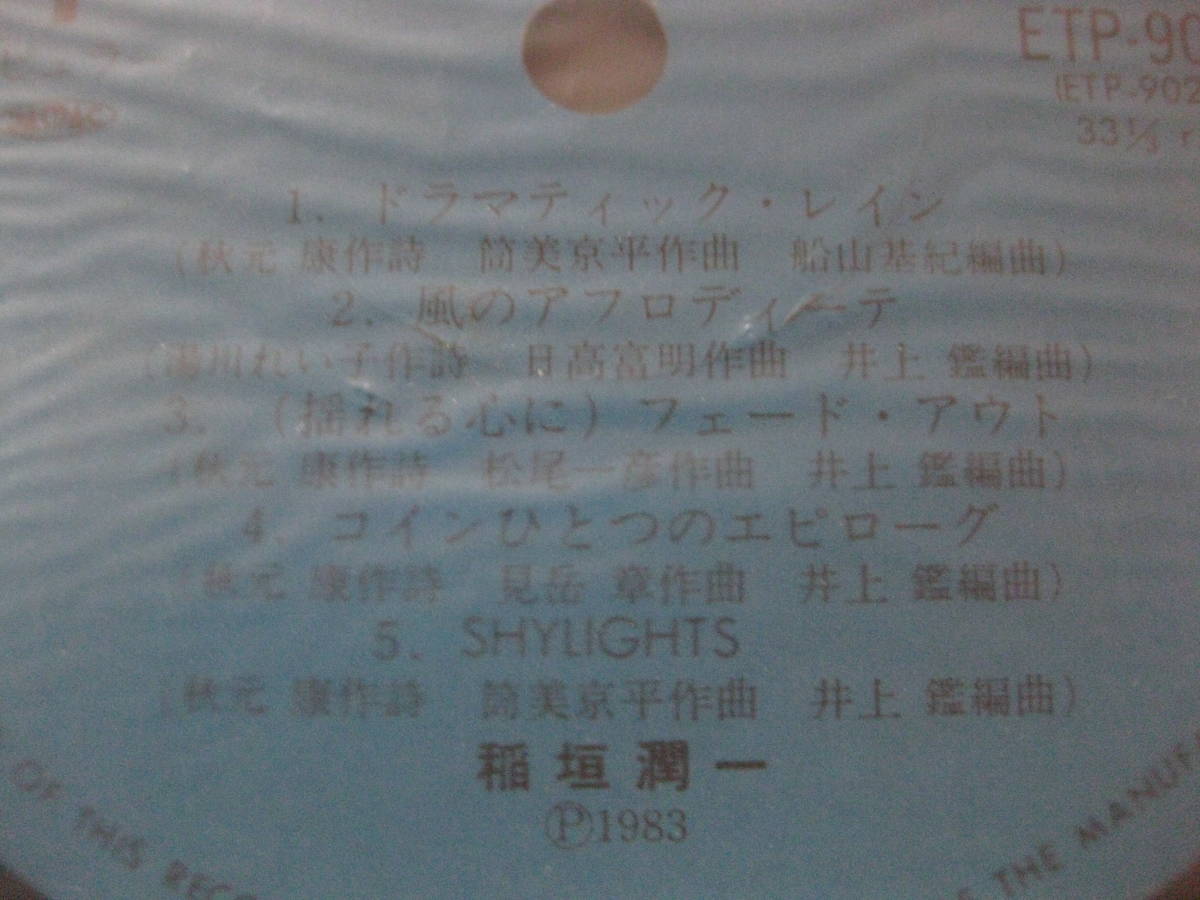 ETP-90
(ETP-902
33 1/3 r
1. ドラマティック・レイン
(秋元 康作詩 筒美京平作曲 船山基紀編曲)
2. 風のアフロディーテ
(湯川れい子作詩 日高富明作曲 井上 鑑編曲)
3. (揺れる心に)フェード・アウト
(秋元 康作詩 松尾一彦作曲 井上 鑑編曲)
4. コインひとつのエピローグ
(秋元 康作詩 見岳 章作曲 井上 鑑編曲)
5. SHYLIGHTS
(秋元 康作詩 筒美京平作曲 井上 鑑編曲)
稲垣潤一
Ⓟ1983
OF THIS RECO
THE MANUF